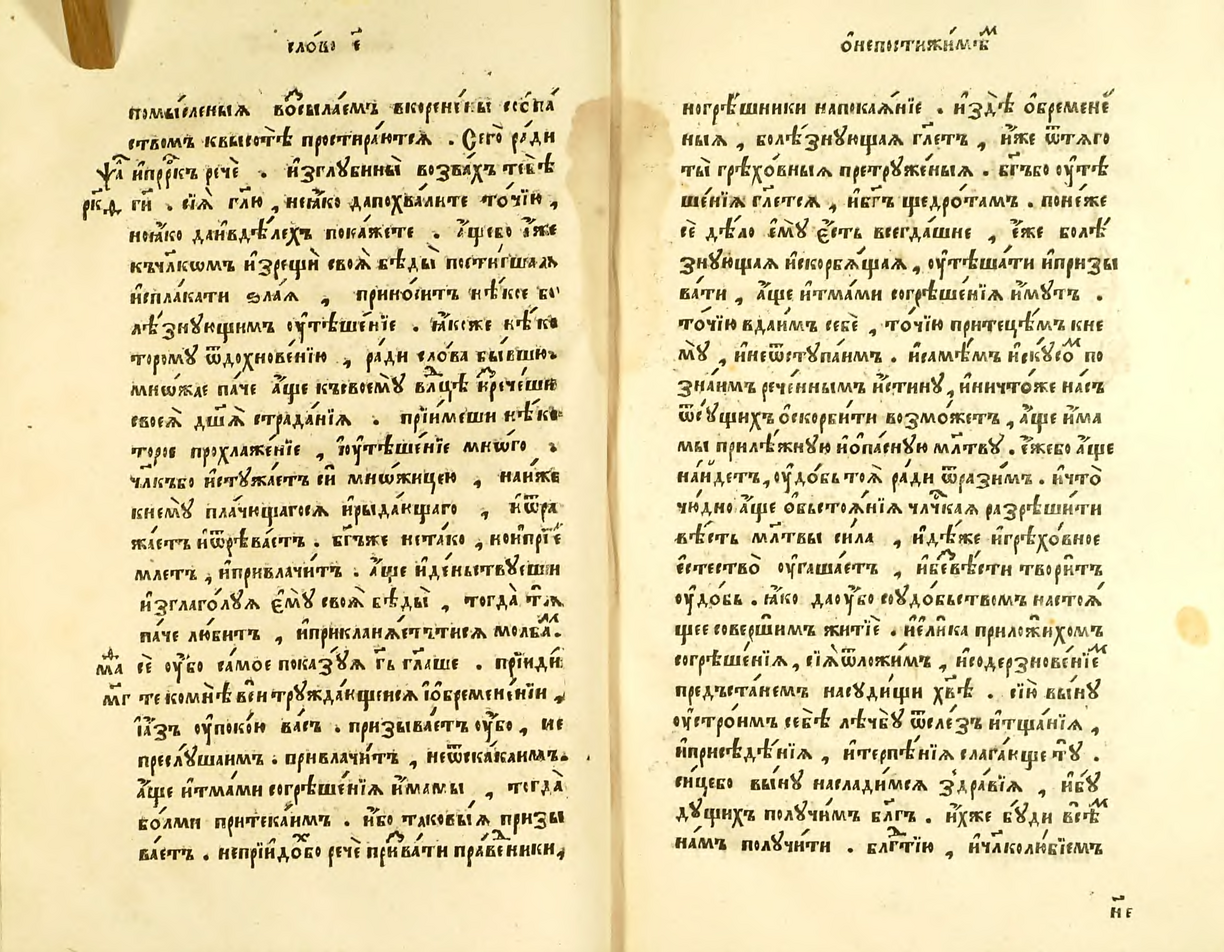 сло́во є҃
помы́сленыѧ во́сылаємъ вкорени́вы
ствомъ квысотѣ̀ простира́ютсѧ . Сего̀ ра́ди
ѱа҃ и҆прⷪ҇ркъ речѐ . и҆зглубины̀ возва́хъ тебѣ̀
рк҃ѳ гд҃и . сїѧ̀ гл҃ю , неꙗ҆́ко дапохва́лите то́чїю ,
ноꙗ҆́ко даи҆вдѣ́лехъ пока́жете . а҆́щебо ꙗ҆́же
къчл҃комъ и҆зрещѝ своѧ̀ бѣды̀
и҆спла́кати ѕла́ѧ , прино́ситъ нѣ́кое бо
лѣ́знующимъ ѹ҆тѣше́нїе . ꙗ҆́коже нѣ́ко
торомꙋ ѿдохнове́нїю , ра́ди сло́ва бы́вшю
мно́жае па́че а҆́ще късвоемꙋ̀ влⷣцѣ и҆речеши
своеѧ̀ дш҃а̀ страда́нїѧ . прїи́меши нѣ́ко
торое прохлаже́нїе , и҆ѹ҆тѣше́нїе мно́го .
чл҃къбо и҆стужа́етъ сѝ мно́жицею , наи́же
кнемꙋ̀ пла́чющагосѧ и҆рыда́ющаго , и҆ѿра
жа́етъ и҆ѿрѣва́етъ . бг҃ъже нета́ко , нои҆прїе́
млетъ , и҆привлачи́тъ . а҆́ще и҆деньствꙋ́еши
и҆зглаго́луѧ є҆мꙋ̀ своѧ̀ бѣды̀ , тогда̀ тѧ̀
па́че лю́битъ , и҆приклана́етътисѧ молба́мъ .
мѳ҃а сѐ ѹ҆́бо са́мое пока́зꙋѧ гд҃ь гл҃аше . прїиди
мг҃ те комнѣ̀ всѝ тружда́ющеисѧ и҆ѡ҆бремене́нїи ,
и҆а҆́зъ ѹ҆поко́ю ва́съ . призыва́етъ ѹ҆́бо , не
преслꙋ́шаимъ . привлачи́тъ , неѿска́каимъ .
а҆́ще и҆тма́ми согрѣше́нїѧ и҆́мамы , тогда̀
бо́лми притека́имъ . и҆́бо таковы́ѧ призы
ва́етъ . непрїидо́хбо речѐ призва́ти пра́ведники ,
ѡ҆непостижи́мѣмъ
ногрѣ́шники напокаѧ́нїе . и҆здѣ̀ ѡ҆бремене́
ныѧ , болѣ́знующаѧ гл҃етъ , и҆́же ѿтѧго
ты̀ грѣхо́вныѧ претрꙋ́женыѧ . бг҃ъбо ѹ҆тѣ
ше́нїѧ гл҃етсѧ , и҆бг҃ъ щедро́тамъ . поне́же
сѐ дѣ́ло є҆мꙋ̀ є҆́сть всегда́шне , є҆́же болѣ́
знующаѧ и҆скорбѧ́щаѧ , ѹ҆тѣша́ти и҆призы
ва́ти , а҆́ще и҆тма́ми согрѣше́нїѧ и҆́мутъ .
то́чїю вдаи́мъ себѐ , то́чїю притеце́мъ кне
мꙋ̀ , и҆неѿступа́имъ . и҆самѣ́мъ и҆скꙋ́сомъ по
зна́имъ рече́ннымъ и҆́стинꙋ , и҆ничто́же на́съ
ѿсꙋ́щихъ ѡ҆скорби́ти возмо́жетъ , а҆́ще и҆́ма
мы прилѣ́жнꙋю и҆ѡ҆па́снꙋю мл҃твꙋ . є҆́жебо а҆́ще
на́йдетъ , ѹ҆до́бь тоѧ̀ ра́ди ѿрази́мъ . и҆что̀
чю́дно а҆́ще ѡ҆бьстоѧ́нїѧ чл҃чкаѧ разрѣши́ти
вѣ́сть мл҃твы си́ла , и҆дѣ́же и҆грѣхо́вное
є҆стество̀ ѹ҆гаша́етъ , и҆безвѣ́сти твори́тъ
ѹ҆до́бь . ꙗ҆́ко даѹ҆́бо соѹ҆до́бьствомъ настоѧ́
щее соверши́мъ житїѐ . и҆є҆ли́ка приложи́хомъ
согрѣше́нїѧ , сїѧ̀ѿложи́мъ , и҆содерзнове́нїемъ
предъста́немъ насꙋди́щи хв҃ѣ . сїю̀ вы́нꙋ
ѹ҆стро́имъ себѣ̀ лѣчбꙋ̀ ѿсле́зъ и҆тща́нїѧ ,
и҆присѣдѣ́нїѧ , и҆терпѣ́нїѧ слага́юще тꙋ̀ .
си́цебо вы́нꙋ наслади́мсѧ здра́вїѧ , и҆бꙋ́
дꙋщихъ полꙋ́чимъ бл҃гъ . и҆́хже бꙋ́ди всѣ́мъ
на́мъ полꙋчи́ти . блгⷣтїю , и҆чл҃колю́бїемъ
н҃е